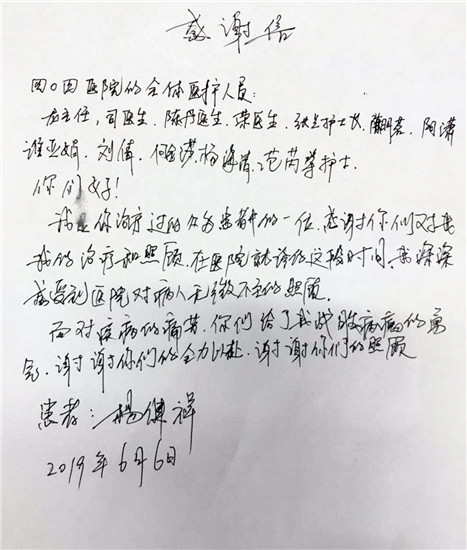 感谢信
四〇四医院的全体医护人员:
方主任,司医生、陈丹医生、荣医生、张兰护士长、 陶潇
谁亚娟、刘倩、何金潇、杨海清、范芮等护士
你们好!
我是你治疗过的众多患者中的一位,感谢你们又对我
我的治疗和照顾,在医院就诊的这段时间,我深深
感受到医院对病人无微不至的照顾。
面对疾病的痛苦,你们给了我战胜病痛的勇
气,谢谢你们的全力以赴,谢谢你们的照顾
患者:杨健祥
2019年6月6日